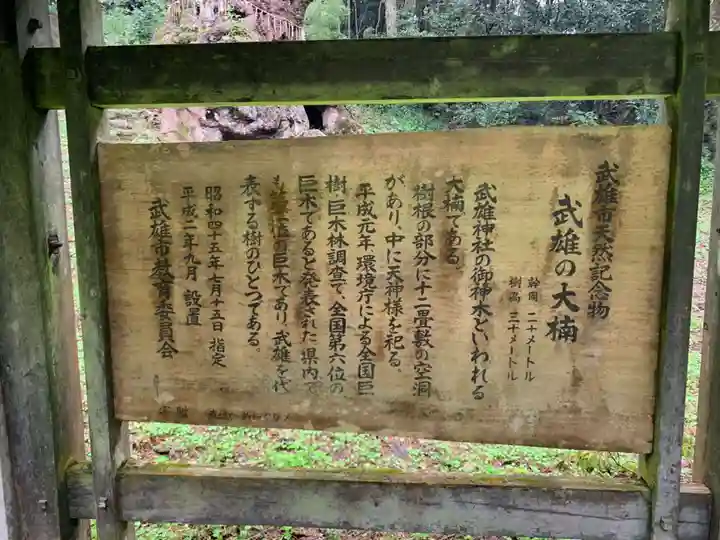 武雄市天然記念物
武雄の大楠
幹周 二十メートル
樹高 三十メートル
武雄神社の御神木といわれる
大楠である。
樹根の部分に十二畳敷の空洞
があり、中に天神様を祀る。
平成元年、環境庁による全国巨
樹・巨木林調査で、全国第六位の
巨木であると発表された。県内で
も第一位の巨木であり、武雄を代
表する樹のひとつである。
昭和四十五年七月十五日 指定
平成二年九月 設置
武雄市教育委員会